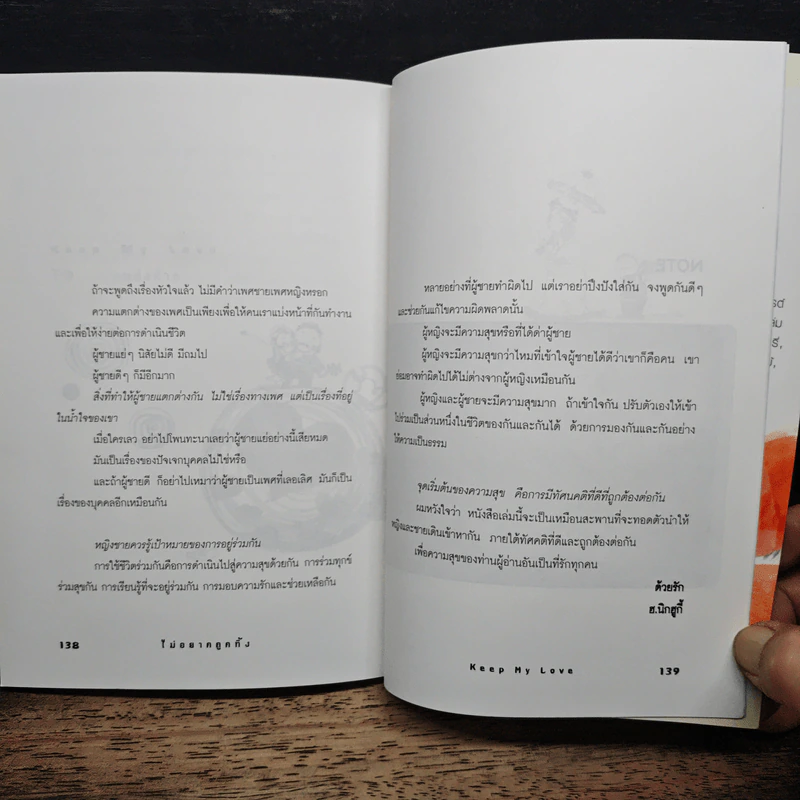 ถ้าจะพูดถึงเรื่องหัวใจแล้ว ไม่มีคำว่าเพศชายเพศหญิงหรอก
ความแตกต่างของเพศเป็นเพียงเพื่อให้คนเราแบ่งหน้าที่กันทำงาน
และเพื่อให้ง่ายต่อการดำเนินชีวิต
ผู้ชายแย่ๆ นิสัยไม่ดี มีถมไป
ผู้ชายดีๆ ก็มีอีกมาก
สิ่งที่ทำให้ผู้ชายแตกต่างกัน ไม่ใช่เรื่องทางเพศ แต่เป็นเรื่องที่อยู่
ในน้ำใจของเขา
เมื่อใครเลว อย่าไปโพนทะนาเลยว่าผู้ชายแย่อย่างนี้เสียหมด
มันเป็นเรื่องของปัจเจกบุคคลไม่ใช่หรือ
และถ้าผู้ชายดี ก็อย่าไปเหมาว่าผู้ชายเป็นเพศที่เลอเลิศ มันก็เป็น
เรื่องของบุคคลอีกเหมือนกัน
หญิงชายควรรู้เป้าหมายของการอยู่ร่วมกัน
การใช้ชีวิตร่วมกันคือการดำเนินไปสู่ความสุขด้วยกัน การร่วมทุกข์
ร่วมสุขกัน การเรียนรู้ที่จะอยู่ร่วมกัน การมอบความรักและช่วยเหลือกัน
138 ไม่อยากถูกทิ้ง
หลายอย่างที่ผู้ชายทำผิดไป แต่เราอย่าปึงปังใส่กัน จงพูดกันดีๆ
และช่วยกันแก้ไขความผิดพลาดนั้น
ผู้หญิงจะมีความสุขหรือที่ได้ด่าผู้ชาย
ผู้หญิงจะมีความสุขกว่าไหมที่เข้าใจผู้ชายได้ดีว่าเขาก็คือคน เขา
ย่อมอาจทำผิดไปได้ไม่ต่างจากผู้หญิงเหมือนกัน
ผู้หญิงและผู้ชายจะมีความสุขมาก ถ้าเข้าใจกัน ปรับตัวเองให้เข้า
ไปร่วมเป็นส่วนหนึ่งในชีวิตของกันและกันได้ ด้วยการมองกันและกันอย่าง
ให้ความเป็นธรรม
จุดเริ่มต้นของความสุข คือการมีทัศนคติที่ดีที่ถูกต้องต่อกัน
ผมหวังใจว่า หนังสือเล่มนี้จะเป็นเหมือนสะพานที่จะทอดตัวนำให้
หญิงและชายเดินเข้าหากัน ภายใต้ทัศคติที่ดีและถูกต้องต่อกัน
เพื่อความสุขของท่านผู้อ่านอันเป็นที่รักทุกคน
ด้วยรัก
ฮ.นิกฮูกี้
Keep My Love 139